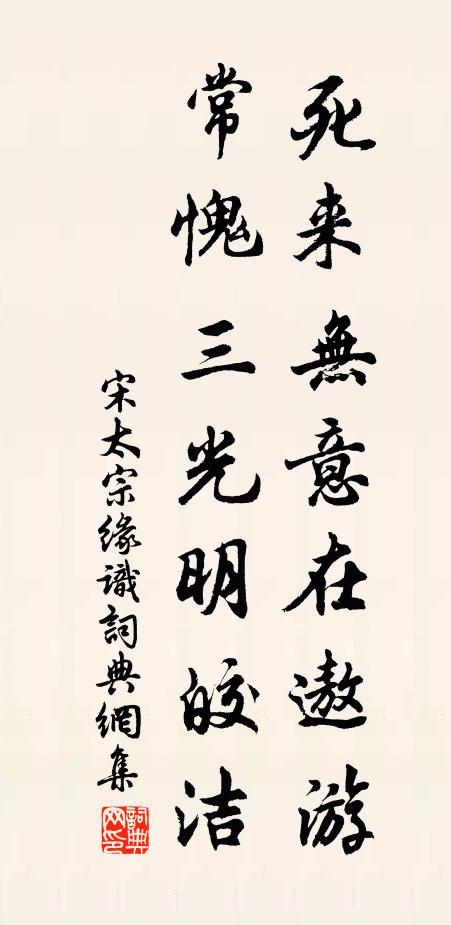 死来無意在遨游
常愧三光明皎洁
宋太宗緣識詞典網集
詞典网印